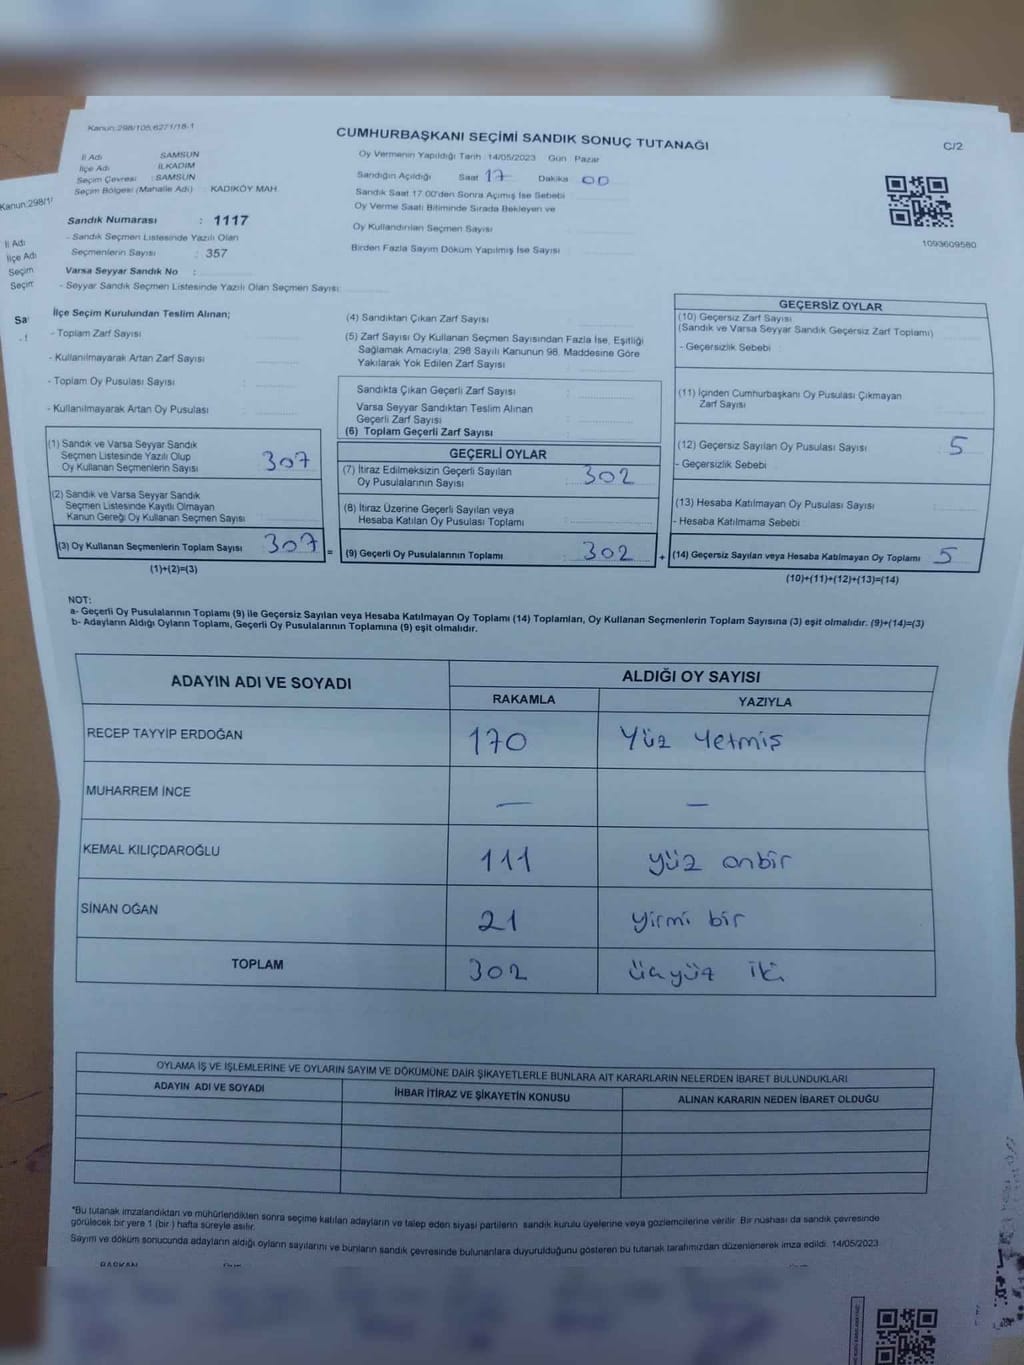 Kanun:298/105,6271/18-1
CUMHURBAŞKANI SEÇİMİ SANDIK SONUÇ TUTANAĞI
C/2
İl Adı SAMSUN
İlçe Adı İLKADIM
Seçim Çevresi : SAMSUN
Seçim Bölgesi (Mahalle Adı) : KADIKÖY MAH.
Oy Vermenin Yapıldığı Tarih : 14/05/2023 Gün : Pazar
Sandığın Açıldığı Saat 17 Dakika 00
Sandık Saat 17.00'den Sonra Açımış İse Sebebi
Oy Verme Saati Bitiminde Sırada Bekleyen ve
Oy Kullandırılan Seçmen Sayısı
Birden Fazla Sayım Döküm Yapılmış İse Sayısı
1093609580
Sandık Numarası : 1117
- Sandık Seçmen Listesinde Yazılı Olan
Seçmenlerin Sayısı : 357
Varsa Seyyar Sandık No :
- Seyyar Sandık Seçmen Listesinde Yazılı Olan Seçmen Sayısı:
Kanun:298/1
İl Adı
İlçe Adı
Seçim
Seçim
Sa
İlçe Seçim Kurulundan Teslim Alınan;
- Toplam Zarf Sayısı
- Kullanılmayarak Artan Zarf Sayısı
- Toplam Oy Pusulası Sayısı
- Kullanılmayarak Artan Oy Pusulası
(1) Sandık ve Varsa Seyyar Sandık
Seçmen Listesinde Yazılı Olup
Oy Kullanan Seçmenlerin Sayısı 307
(2) Sandık ve Varsa Seyyar Sandık
Seçmen Listesinde Kayıtlı Olmayan
Kanun Gereği Oy Kullanan Seçmen Sayısı
(3) Oy Kullanan Seçmenlerin Toplam Sayısı 307 =
(1)+(2)=(3)
(4) Sandıktan Çıkan Zarf Sayısı
(5) Zarf Sayısı Oy Kullanan Seçmen Sayısından Fazla İse, Eşitliği
Sağlamak Amacıyla, 298 Sayılı Kanunun 98. Maddesine Göre
Yakılarak Yok Edilen Zarf Sayısı
Sandıkta Çıkan Geçerli Zarf Sayısı
Varsa Seyyar Sandıktan Teslim Alınan
Geçerli Zarf Sayısı
(6) Toplam Geçerli Zarf Sayısı
GEÇERLİ OYLAR
(7) İtiraz Edilmeksizin Geçerli Sayılan
Oy Pusulalarının Sayısı 302
(8) İtiraz Üzerine Geçerli Sayılan veya
Hesaba Katılan Oy Pusulası Toplamı
(9) Geçerli Oy Pusulalarının Toplamı 302 +
GEÇERSİZ OYLAR
(10) Geçersiz Zarf Sayısı
(Sandık ve Varsa Seyyar Sandık Geçersiz Zarf Toplamı)
- Geçersizlik Sebebi
(11) İçinden Cumhurbaşkanı Oy Pusulası Çıkmayan
Zarf Sayısı
(12) Geçersiz Sayılan Oy Pusulası Sayısı 5
- Geçersizlik Sebebi
(13) Hesaba Katılmayan Oy Pusulası Sayısı
- Hesaba Katılmama Sebebi
(14) Geçersiz Sayılan veya Hesaba Katılmayan Oy Toplamı 5
(10)+(11)+(12)+(13)=(14)
NOT:
a- Geçerli Oy Pusulalarının Toplamı (9) ile Geçersiz Sayılan veya Hesaba Katılmayan Oy Toplamı (14) Toplamları, Oy Kullanan Seçmenlerin Toplam Sayısına (3) eşit olmalıdır. (9)+(14)=(3)
b- Adayların Aldığı Oyların Toplamı, Geçerli Oy Pusulalarının Toplamına (9) eşit olmalıdır.
ADAYIN ADI VE SOYADI
ALDIĞI OY SAYISI
RAKAMLA YAZIYLA
RECEP TAYYİP ERDOĞAN 170 Yüz Yetmiş
MUHARREM İNCE — —
KEMAL KILIÇDAROĞLU 111 yüz onbir
SİNAN OĞAN 21 yirmi bir
TOPLAM 302 üçyüz iki
OYLAMA İŞ VE İŞLEMLERİNE VE OYLARIN SAYIM VE DÖKÜMÜNE DAİR ŞİKAYETLERLE BUNLARA AİT KARARLARIN NELERDEN İBARET BULUNDUKLARI
ADAYIN ADI VE SOYADI İHBAR İTİRAZ VE ŞİKAYETİN KONUSU ALINAN KARARIN NEDEN İBARET OLDUĞU
*Bu tutanak imzalandıktan ve mühürlendikten sonra seçime katılan adayların ve talep eden siyasi partilerin sandık kurulu üyelerine veya gözlemcilerine verilir. Bir nüshası da sandık çevresinde
görülecek bir yere 1 (bir ) hafta süreyle asılır.
Sayım ve döküm sonucunda adayların aldığı oyların sayılarını ve bunların sandık çevresinde bulunanlara duyurulduğunu gösteren bu tutanak tarafımızdan düzenlenerek imza edildi. 14/05/2023
BAŞKAN